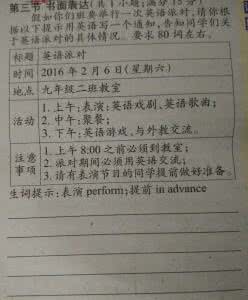 第三节 书面表达(共1小题;满分15分)
假如你们班要举行一次英语派对,请你根
据以下提示用英语写一个通知,告知同学们关
于英语派对的具体情况。要求80词左右。
标题 英语派对
时间 2016年2月6日(星期六)
地点 九年级二班教室
活动
1. 上午:表演:英语戏剧、英语歌曲;
2. 中午:聚餐;
3. 下午:英语游戏、与外教交流。
注意事项
1. 上午8:00之前必须到教室;
2. 派对期间必须用英语交流;
3. 请有表演节目的同学提前做好准备。
生词提示:表演 perform;提前 in advance